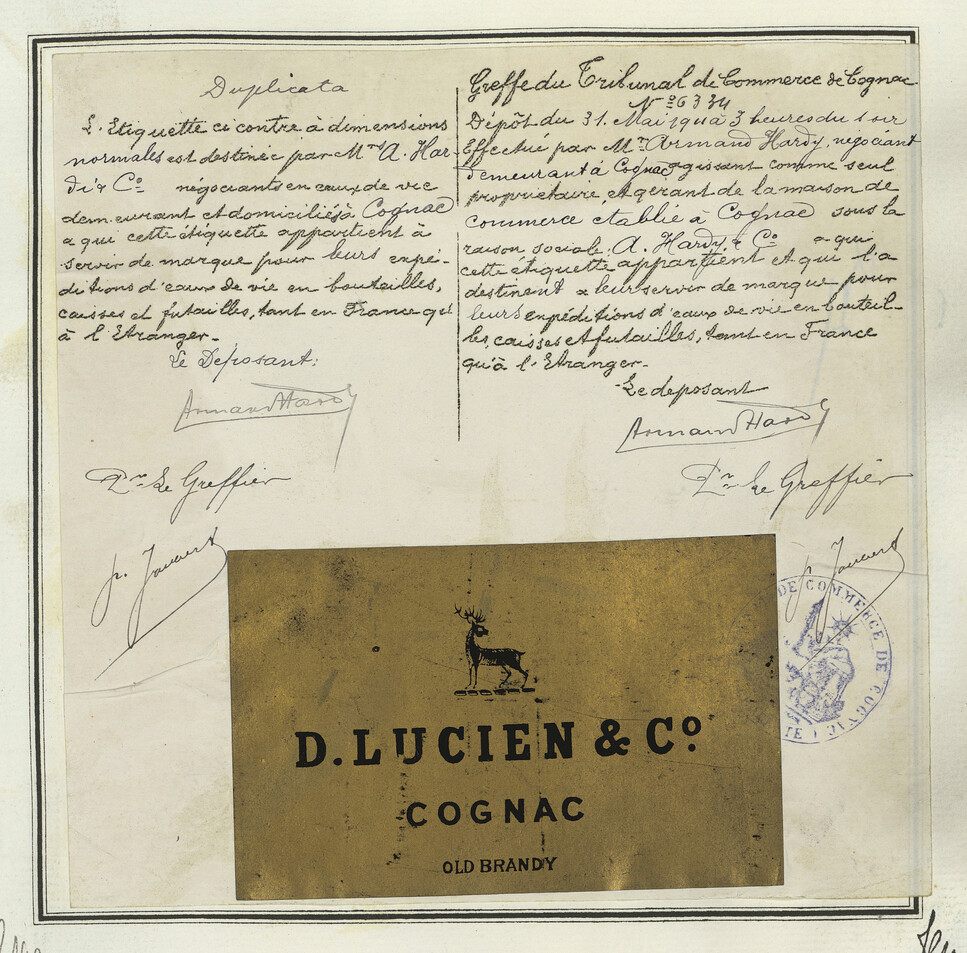 Duplicata
L'Etiquette ci contre à dimensions
normales est destinée par Mrs A. Har-
di & Co négociants en eaux de vie
demeurant et domiciliés à Cognac
a qui cette étiquette appartient à
servir de marque pour leurs expé-
ditions d'eaux de vie en bouteilles,
caisses et futailles, tant en France qu'
à l'Etranger.
Le Déposant:
Armand Hardy
Pr Le Greffier
Greffe du Tribunal de Commerce de Cognac
No 6334
Dépôt du 31. Mai à 3 heures du soir
Effectué par Mr Armand Hardy, négociant
demeurant à Cognac agissant comme seul
propriétaire et gérant de la maison de
commerce etablie à Cognac sous la
raison sociale A. Hardy & Co a qui
cette étiquette appartient et qui l'a
destinent a leur servir de marque pour
leurs expéditions d'eaux de vie en bouteil-
les, caisses et futailles, tant en France
qu'à l'Etranger.
Le deposant
Armand Hardy
Pr Le Greffier
DE COMMERCE DE COGNAC
D. LUCIEN & Co.
COGNAC
OLD BRANDY